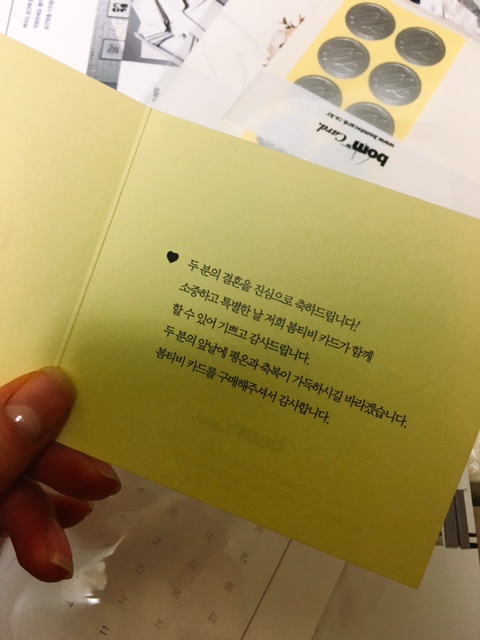 bom Card.
www.bomtvcard.co.kr
♥ 두 분의 결혼을 진심으로 축하드립니다!
소중하고 특별한 날 저희 봄티비 카드가 함께
할 수 있어 기쁘고 감사드립니다.
두 분의 앞날에 평온과 축복이 가득하시길 바라겠습니다.
봄티비 카드를 구매해주셔서 감사합니다.